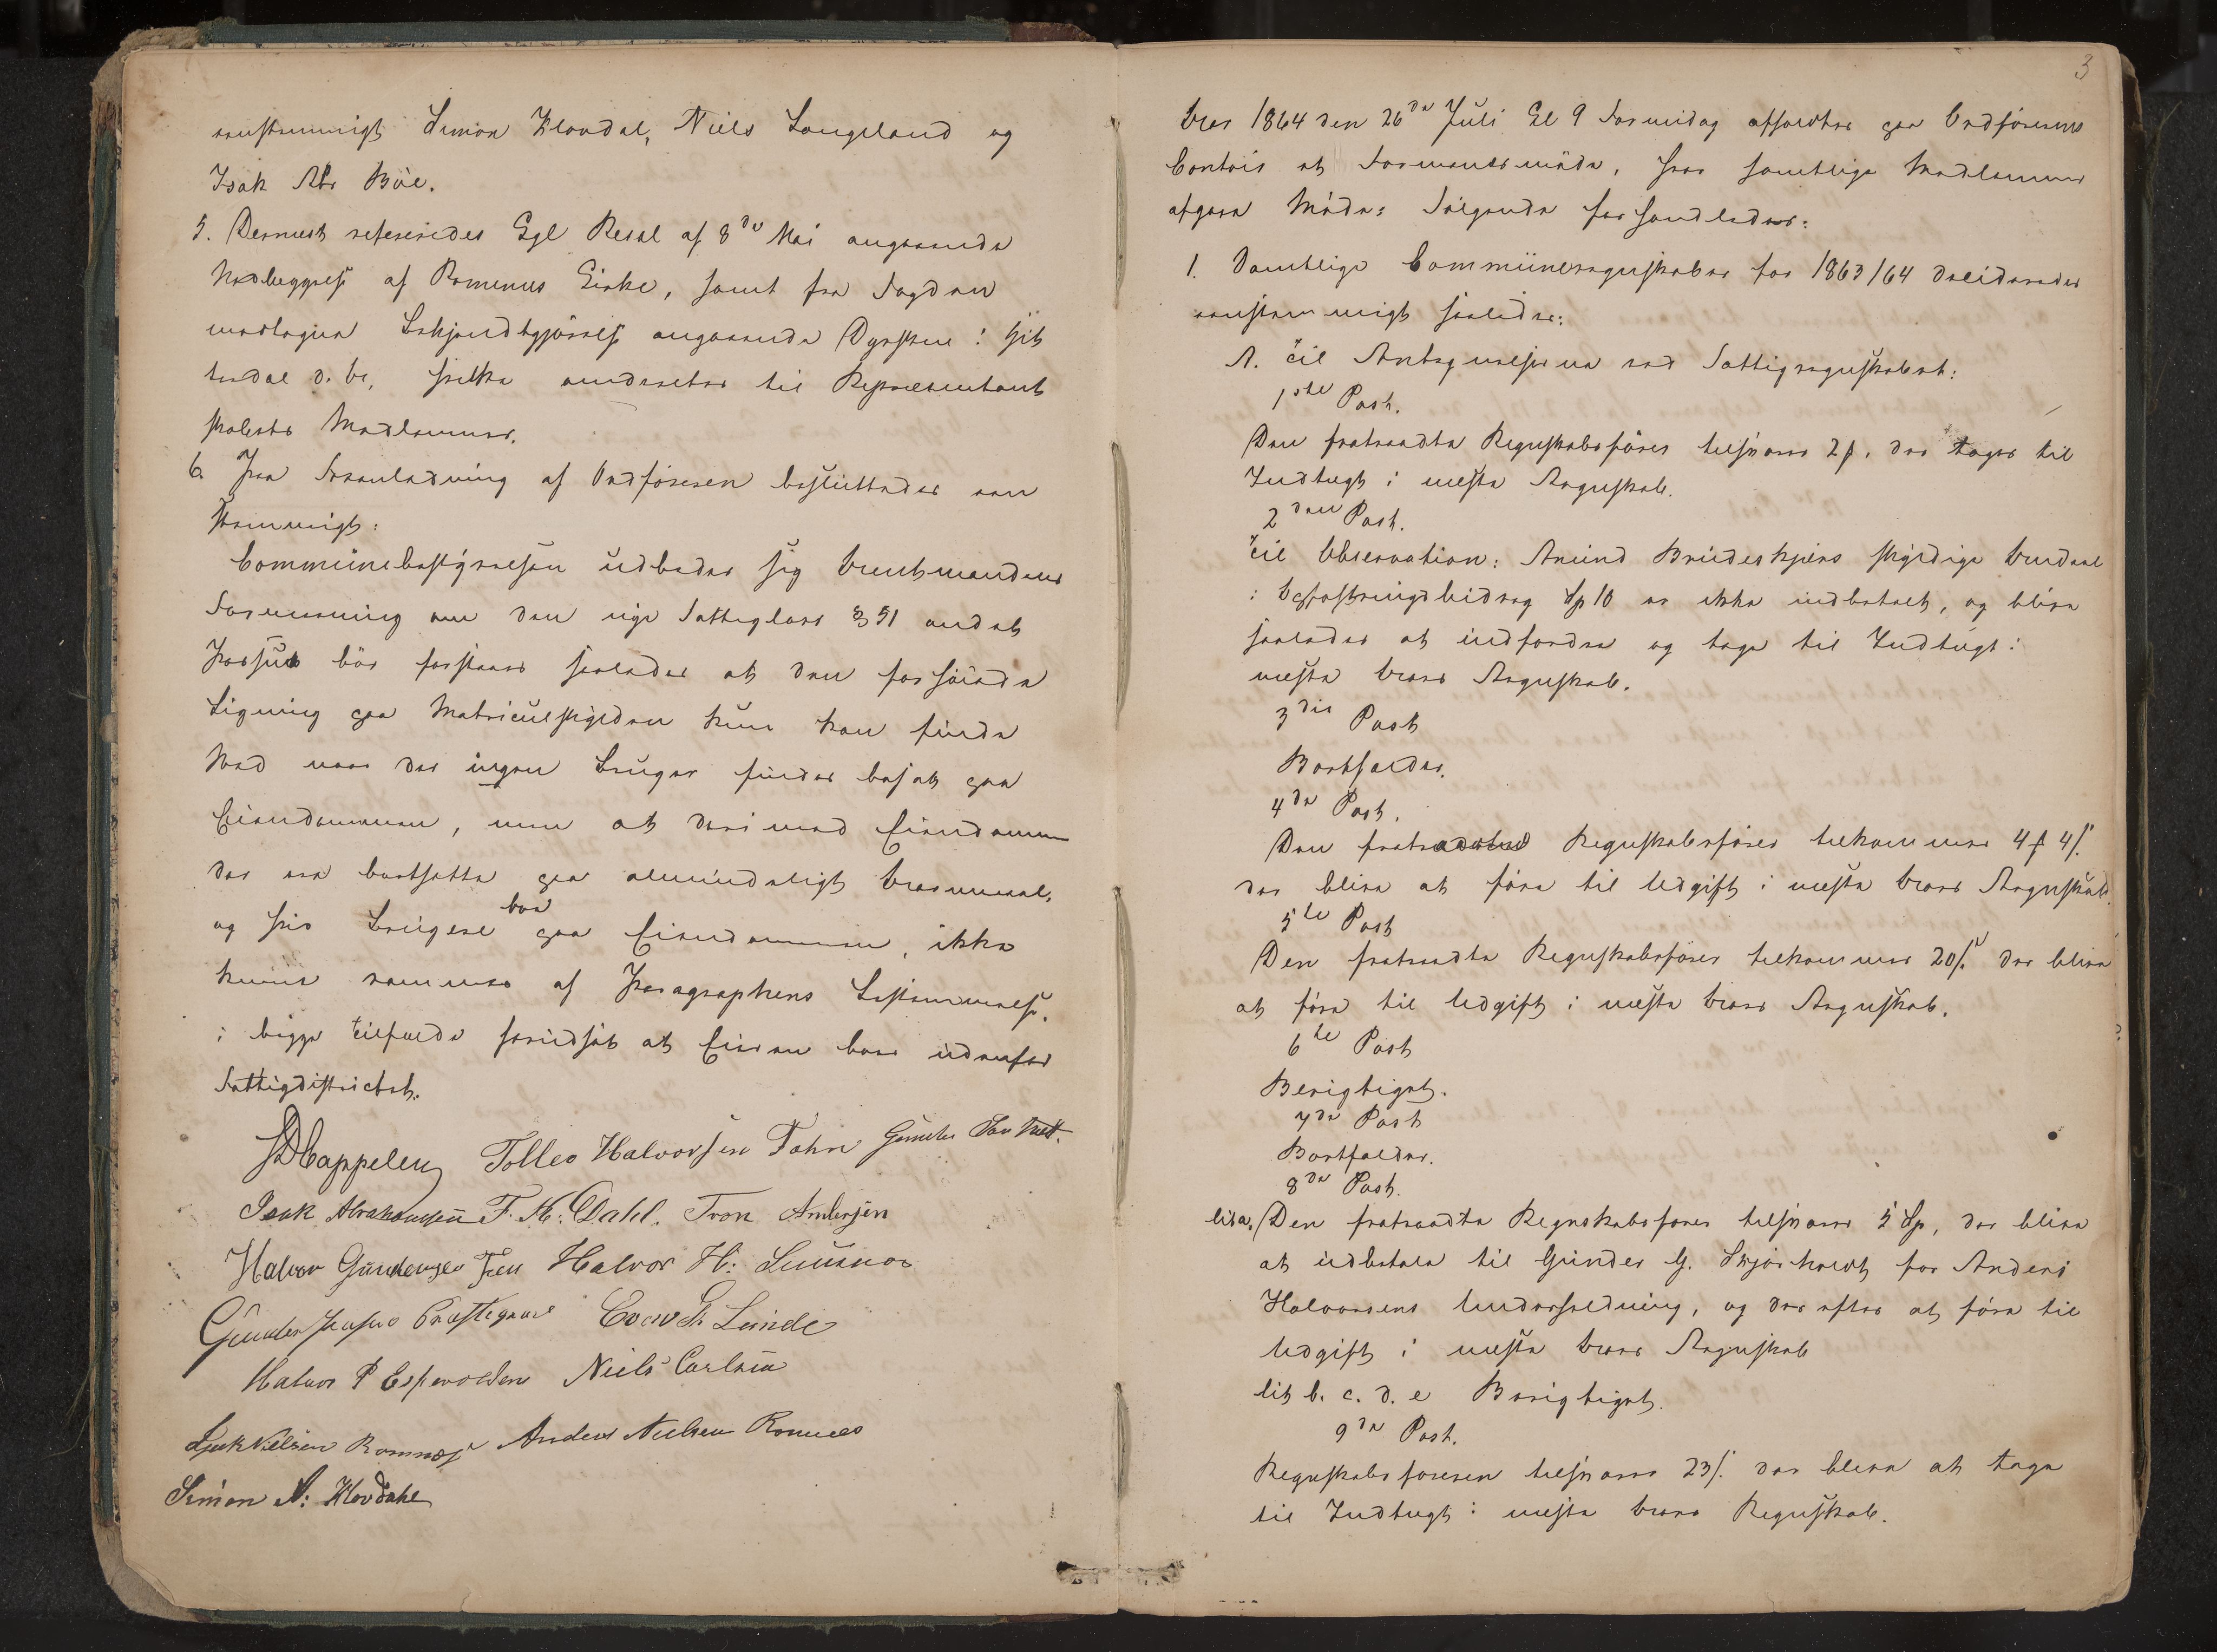 eenstemmigt Simon Klovdal, Niels Langeland og
Isak Abr Bøe.
5. Dernest refereredes Kgl Resol af 8de Mai angaaende
Nedlæggelse af Romenæs Kirke, samt fra Fogden
modtagen Bekjendtgjørelse angaaende Dyrskue i Hit
terdal d. A., hvilke omdeeltes til Repræsentant
skabets Medlemmer.
6. Paa Foranledning af Ordføreren besluttedes een
stemmigt:
Communebestyrelsen udbeder sig Amtmandens
Formening om den nye Fattiglovs § 51 andet
Passus bør forstaaes saaledes at den forhøiede
Ligning paa Matriculskylden kun kan finde
Sted naar der ingen Bruger findes bosat paa
Eiendommen, men at derimod Eiendomme
der ere bortsatte paa almindeligt Aaremaal,
og hvis Brugere boe paa Eiendommen, ikke
kunne rammes af Paragraphens Bestemmelse,
i begge Tilfælde forudsat at Eieren boer udenfor
Fattigdistrictet.
D Cappelen Tollev Halvorsen Gunder
Isak Abrahamsen F. H. Dahl. Tron Andersen
Halvor Gundersen Fen Halvor H:
Gunder Præstegaard Lunde
Halvor P Espevolden Niels Carlsen
Isak Nielsen Romnæs Anders Nielsen Romnes
Simon N: Klovdahl
3
Aar 1864 den 26de Juli Kl 9 Formiddag afholdtes paa Ordførerens
Contoir et Formandsmøde, hvor samtlige Medlemmer
afgave Møde: Følgende forhandledes:
1. Samtlige Communeregnskaber for 1863/64 decideredes
eenstemmigt saaledes:
A. Til Antegnelserne ved Fattigregnskabet:
1ste Post.
Den fratraadte Regnskabsfører tilsvarer 2 β. der tages til
Indtægt i næste Regnskab.
2den Post.
Til Observation: Amund Brudeskjers skyldige Andeel
i Opfostringsbidrag Sp 10 er ikke indbetalt, og blive
saaledes at indfordre og tage til Indtægt i
næste Aars Regnskab.
3die Post
Bortfalder.
4de Post.
Den fratraadte Regnskabsfører tilkommer 4 β 4/.
der blive at føre til Udgift i næste Aars Regnskab.
5te Post
Den fratraadte Regnskabsfører tilkommer 20/. der blive
at føre til Udgift i næste Aars Regnskab.
6te Post
Berigtiget.
7de Post
Bortfalder.
8de Post.
lit a. Den fratraadte Regnskabsfører tilsvarer 5 Sp, der blive
at udbetale til Gunder G. Skjørholdt for Anders
Halvorsens Underholdning, og derefter at føre til
Udgift i næste Aars Regnskab
lit b. c. d. e Berigtiget.
9de Post.
Regnskabsføreren tilsvarer 23/. der blive at tage
til Indtægt i næste Aars Regnskab.